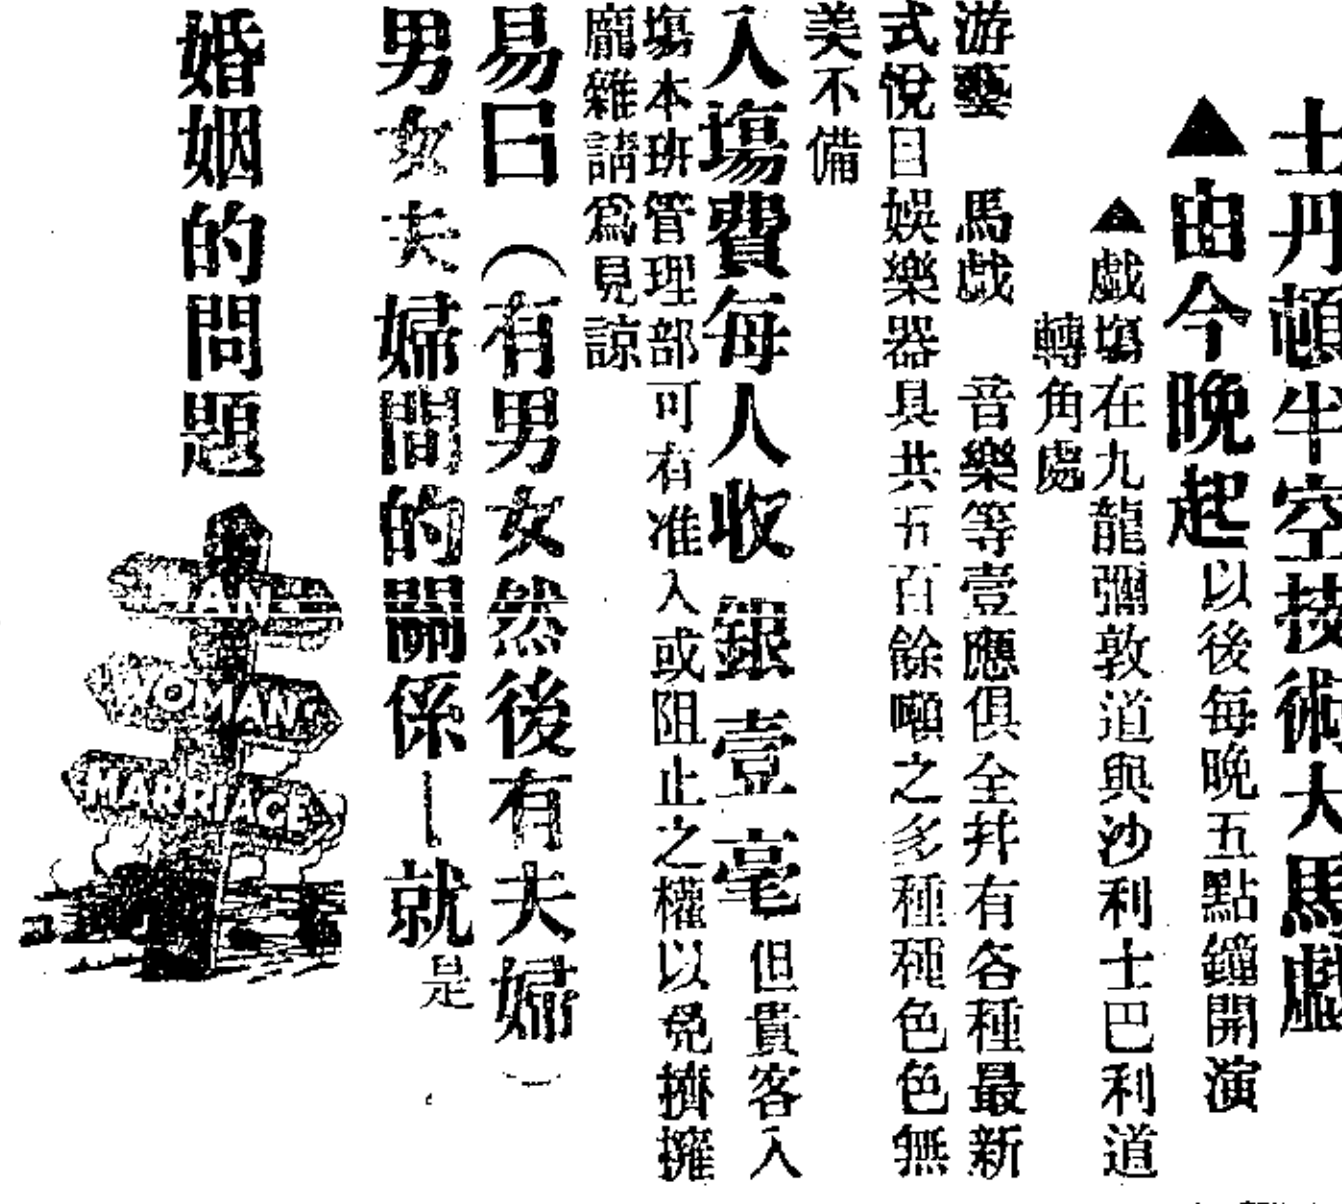 士丹頓牛空技術大馬戲
▲由今晚起以後每晚五點鐘開演
▲戯塲在九龍彌敦道與沙利士巴利道
轉角處
游藝 馬戯 音樂等壹應俱全幷有各種最新
式悅目娛樂器具共五百餘噸之多種種色色無
美不備
入塲費每人收銀壹毫但貴客入
塲本班管理部可有准入或阻止之權以免擠擁
龐雜請爲見諒
易曰（有男女然後有夫婦）
男女夫婦間的關係—就是
婚姻的問題
MAN
WOMAN
MARRIAGE